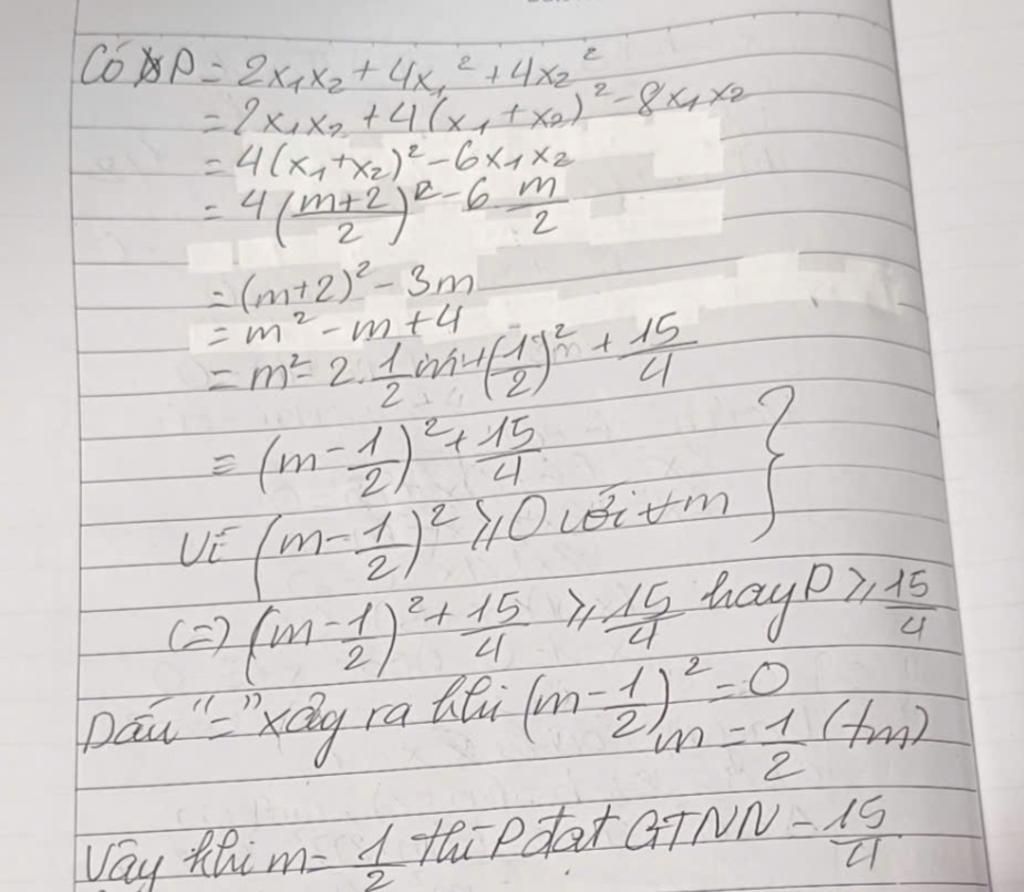 Có P = 2x₁x₂ + 4x₁² + 4x₂²
= 2x₁x₂ + 4(x₁ + x₂)² - 8x₁x₂
= 4(x₁ + x₂)² - 6x₁x₂
= 4((m+2)/2)² - 6 m/2
= (m+2)² - 3m
= m² - m + 4
= m² - 2.1/2 m + (1/2)² + 15/4
= (m - 1/2)² + 15/4
Vì (m - 1/2)² ⩾ 0 với ∀m }
(=) (m - 1/2)² + 15/4 ⩾ 15/4 hay P ⩾ 15/4
Dấu "=" xảy ra khi (m - 1/2)² = 0
m = 1/2 (tm)
Vậy khi m = 1/2 thì P đạt GTNN = 15/4